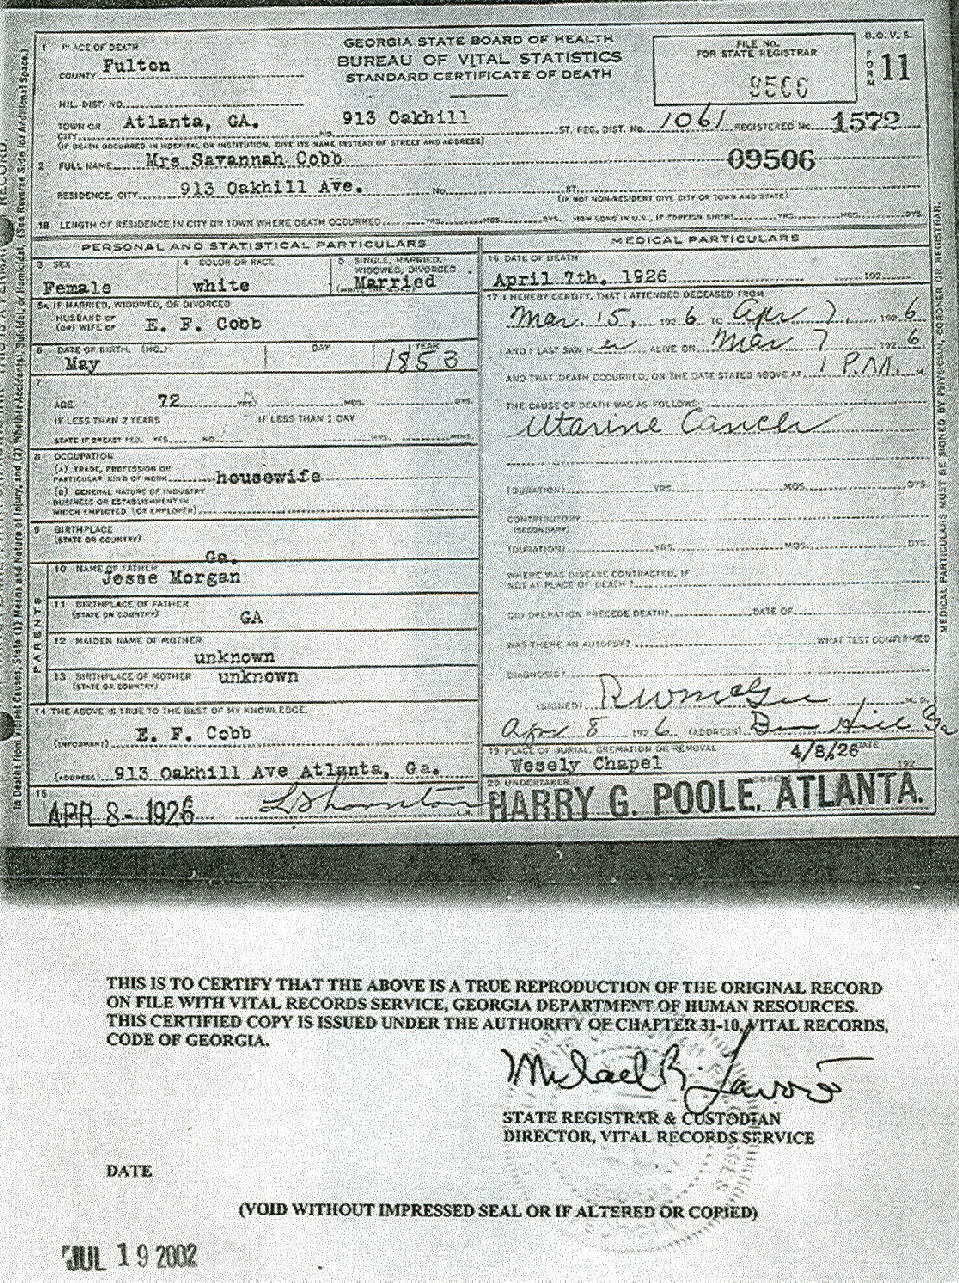 GEORGIA STATE BOARD OF HEALTH
BUREAU OF VITAL STATISTICS
STANDARD CERTIFICATE OF DEATH
FILE NO.
FOR STATE REGISTRAR
9506
B.O.V.S.
FORM 11
1 PLACE OF DEATH
COUNTY Fulton
MIL. DIST. NO.
TOWN OR CITY Atlanta, GA. NO. 913 Oakhill ST. REG. DIST. NO. 1061 REGISTERED No. 1572
(IF DEATH OCCURRED IN HOSPITAL OR INSTITUTION, GIVE ITS NAME INSTEAD OF STREET AND ADDRESS)
2 FULL NAME Mrs Savannah Cobb 09506
RESIDENCE, CITY 913 Oakhill Ave. No. ST.
(IF NOT NON-RESIDENT GIVE CITY OR TOWN AND STATE)
18 LENGTH OF RESIDENCE IN CITY OR TOWN WHERE DEATH OCCURRED YRS. MOS. DYS. HOW LONG IN U.S., IF FOREIGN BIRTH? YRS. MOS. DYS.
PERSONAL AND STATISTICAL PARTICULARS
3 SEX
Female
4 COLOR OR RACE
white
5 SINGLE, MARRIED,
WIDOWED, DIVORCED
Married
5A IF MARRIED, WIDOWED, OR DIVORCED
HUSBAND OF
(OR) WIFE OF E. F. Cobb
6 DATE OF BIRTH, (MO.) DAY YEAR
May 1853
7
AGE 72 YRS. MOS. DYS.
IF LESS THAN 2 YEARS IF LESS THAN 1 DAY
STATE IF BREAST FED. YES NO HRS. MIN.
8 OCCUPATION
(A) TRADE, PROFESSION OR
PARTICULAR KIND OF WORK housewife
(B) GENERAL NATURE OF INDUSTRY
BUSINESS OR ESTABLISHMENT IN
WHICH EMPLOYED (OR EMPLOYER)
9 BIRTHPLACE
(STATE OR COUNTRY)
Ga.
PARENTS
10 NAME OF FATHER
Jesse Morgan
11 BIRTHPLACE OF FATHER
(STATE OR COUNTRY) GA
12 MAIDEN NAME OF MOTHER
unknown
13 BIRTHPLACE OF MOTHER unknown
(STATE OR COUNTRY)
14 THE ABOVE IS TRUE TO THE BEST OF MY KNOWLEDGE
(INFORMANT) E. F. Cobb
(ADDRESS) 913 Oakhill Ave Atlanta, Ga.
15
APR 8 - 1926 L Thornton
MEDICAL PARTICULARS
16 DATE OF DEATH
April 7th, 1926 192
17 I HEREBY CERTIFY, THAT I ATTENDED DECEASED FROM
Mar. 15, 192 6 TO Apr 7 192 6
AND I LAST SAW H er ALIVE ON Mar 7 192 6
AND THAT DEATH OCCURRED, ON THE DATE STATED ABOVE AT 1 P.M. M
THE CAUSE OF DEATH WAS AS FOLLOWS
Utarine Cancer
(DURATION) YRS. MOS. DYS.
CONTRIBUTORY
(SECONDARY)
(DURATION) YRS. MOS. DYS.
WHERE WAS DISEASE CONTRACTED, IF
NOT AT PLACE OF DEATH?
DID OPERATION PRECEDE DEATH? DATE OF
WAS THERE AN AUTOPSY? WHAT TEST CONFIRMED
DIAGNOSIS?
(SIGNED) R W McGee M.D.
Apr 8 192 6 (ADDRESS) Ben Hill Ga
19 PLACE OF BURIAL CREMATION OR REMOVAL DATE
Wesely Chapel 4/8/26 192
20 UNDERTAKER
HARRY G. POOLE, ATLANTA.
MEDICAL PARTICULARS MUST BE SIGNED BY PHYSICIAN, CORONER OR REGISTRAR
THIS IS TO CERTIFY THAT THE ABOVE IS A TRUE REPRODUCTION OF THE ORIGINAL RECORD
ON FILE WITH VITAL RECORDS SERVICE, GEORGIA DEPARTMENT OF HUMAN RESOURCES.
THIS CERTIFIED COPY IS ISSUED UNDER THE AUTHORITY OF CHAPTER 31-10, VITAL RECORDS,
CODE OF GEORGIA.
Michael R. Lavoie
STATE REGISTRAR & CUSTODIAN
DIRECTOR, VITAL RECORDS SERVICE
DATE
(VOID WITHOUT IMPRESSED SEAL OR IF ALTERED OR COPIED)
JUL 19 2002